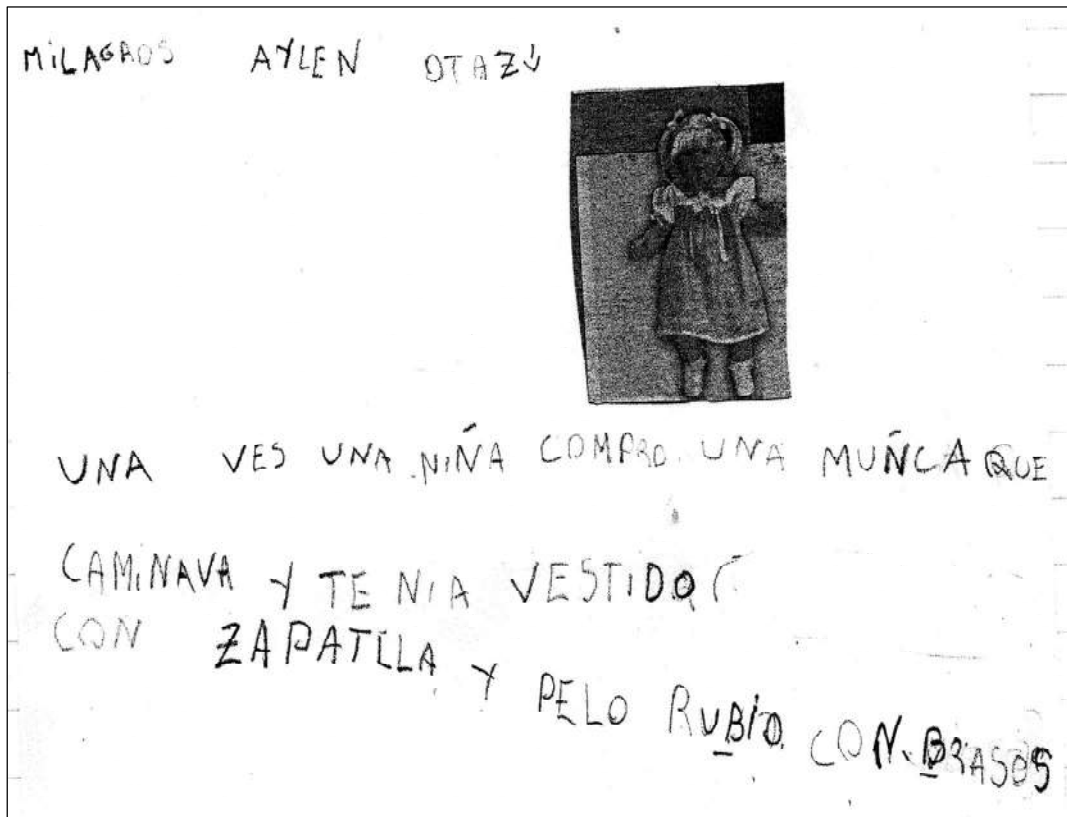 MiLAGROS AYLEN OTAZU
UNA VES UNA NiÑA COMPRO UNA MUÑCA QUE
CAMiNAVA Y TE NIA VESTIDO
CON ZAPATLLA Y PELO RUBiO CON BRASOS